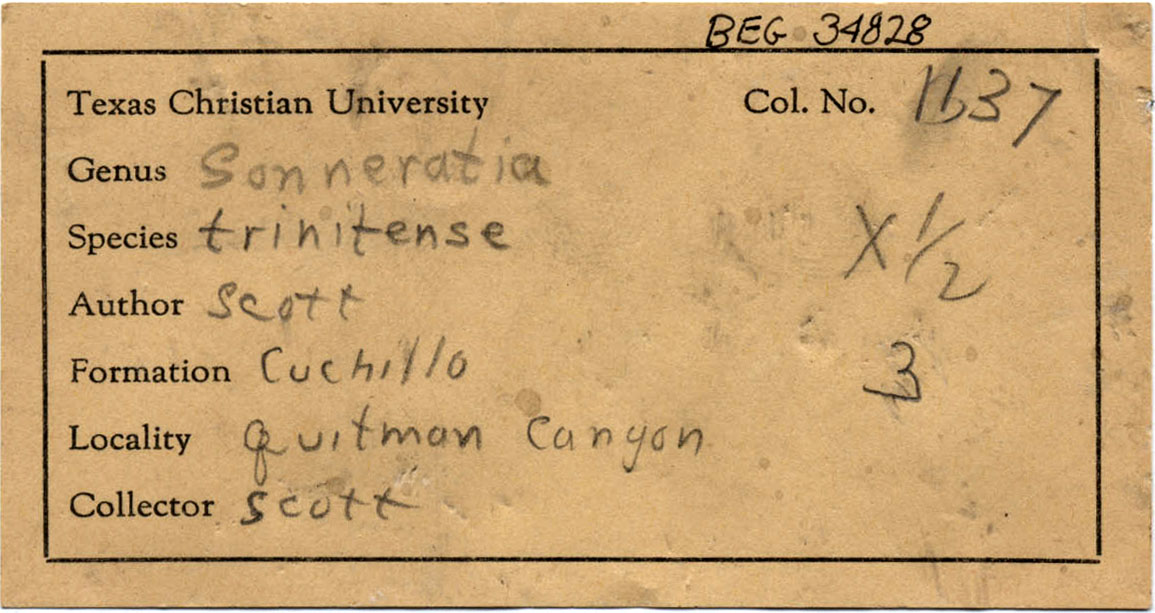 BEG 34828
Texas Christian University Col. No. 1637
Genus Sonneratia
Species trinitense
X 1/2
Author Scott
Formation Cuchillo
3
Locality Quitman Canyon
Collector Scott